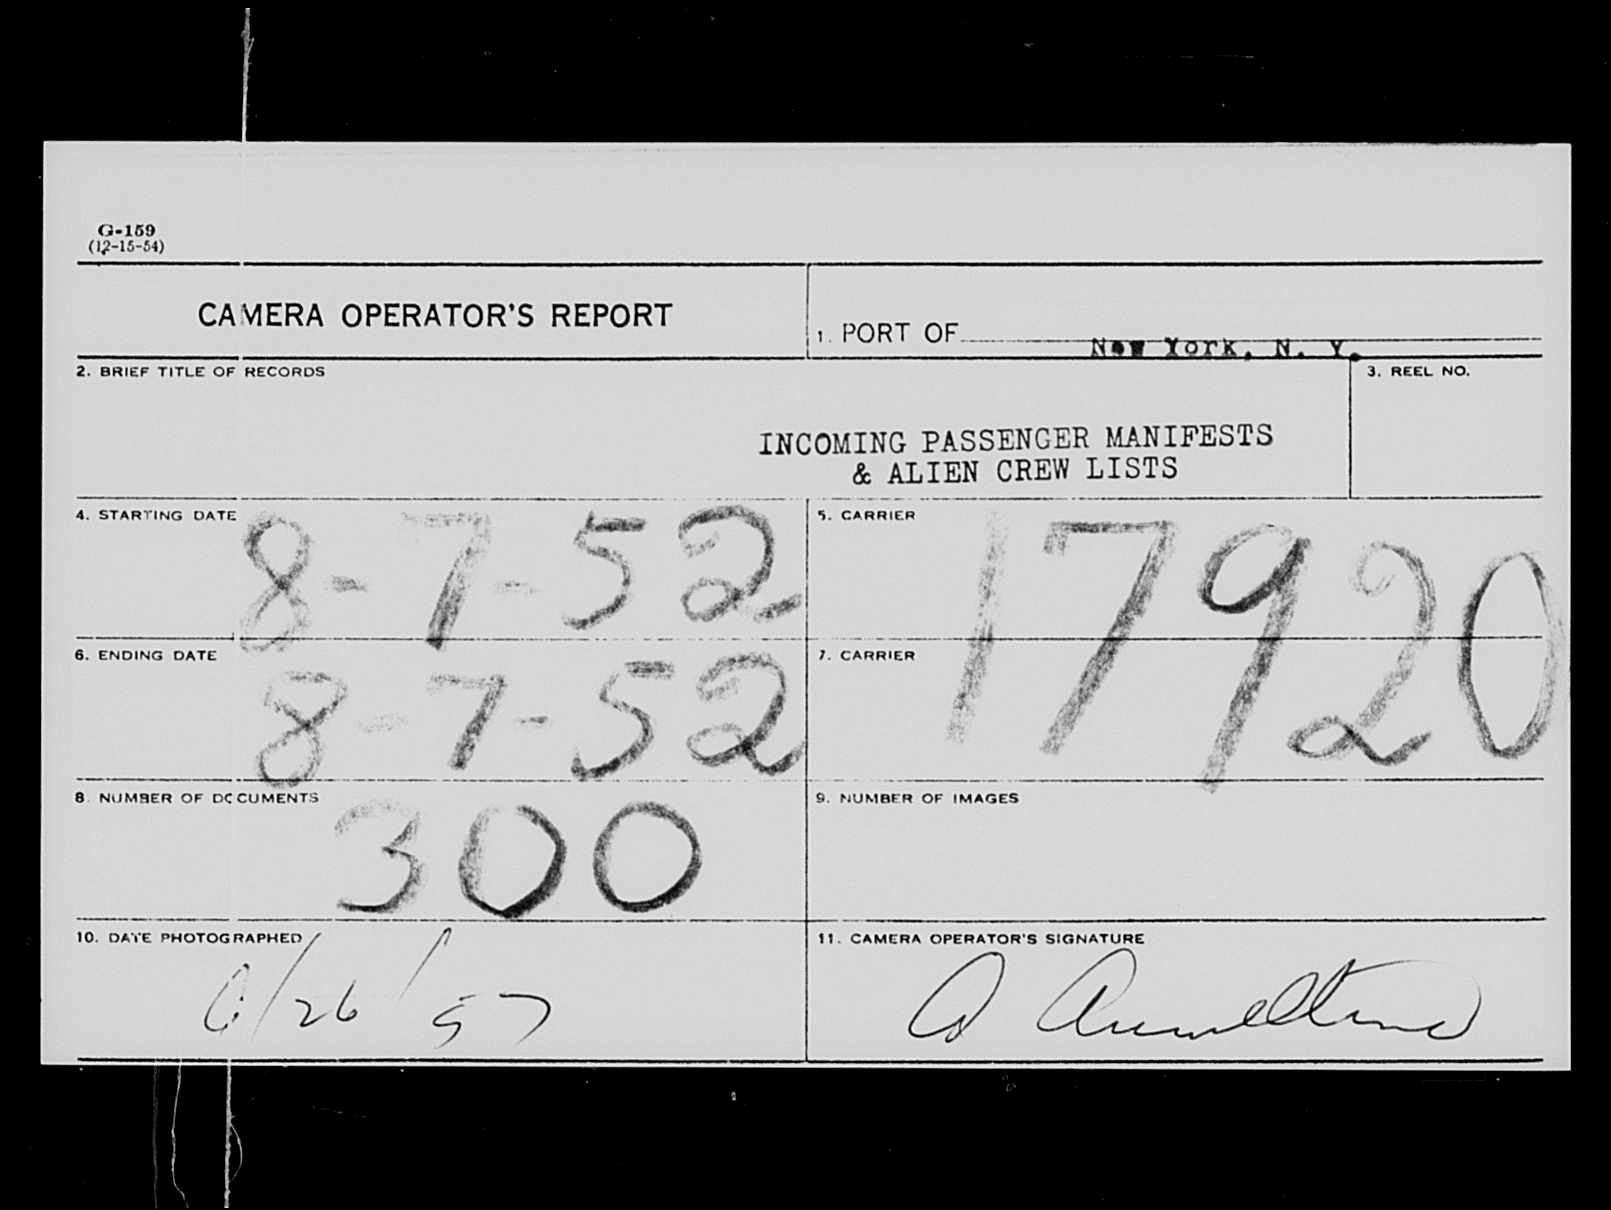 G-159
(12-15-54)
CAMERA OPERATOR'S REPORT
1. PORT OF New York, N. Y.
2. BRIEF TITLE OF RECORDS
3. REEL NO.
INCOMING PASSENGER MANIFESTS
& ALIEN CREW LISTS
4. STARTING DATE 8-7-52
5. CARRIER
17920
6. ENDING DATE 8-7-52
7. CARRIER
8. NUMBER OF DOCUMENTS
300
9. NUMBER OF IMAGES
10. DATE PHOTOGRAPHED
6/26/57
11. CAMERA OPERATOR'S SIGNATURE